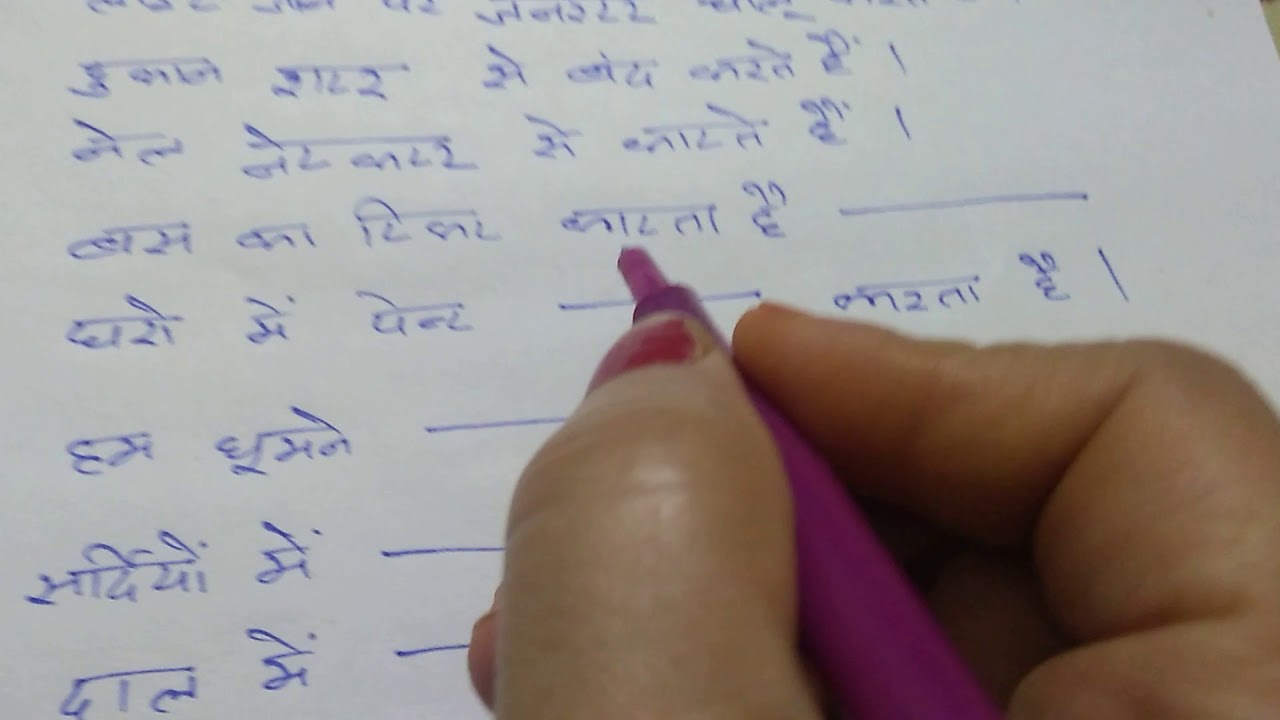 जाने पर जनरेटर चालू
दुकान शटर से बंद करते हैं ।
नेल नेटकटर से काटते हैं ।
बस का टिकट काटता है ______
घरो में पेन्ट ______ करता है ।
हम घूमने ______
सर्दियों में ______
दाल में ______